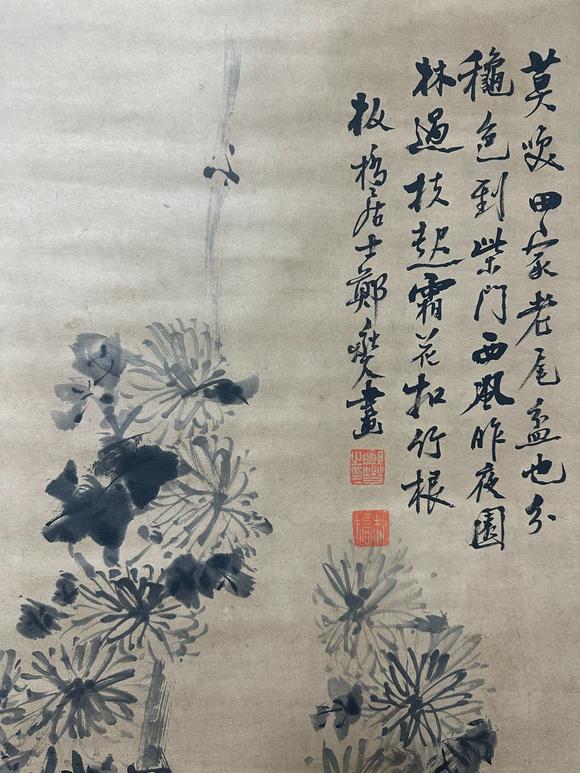 莫咲田家老瓦盆也分
龝色到柴門西風昨夜園
林過扶起霜花扣竹根
板橋居士鄭燮畫
鄭燮之印